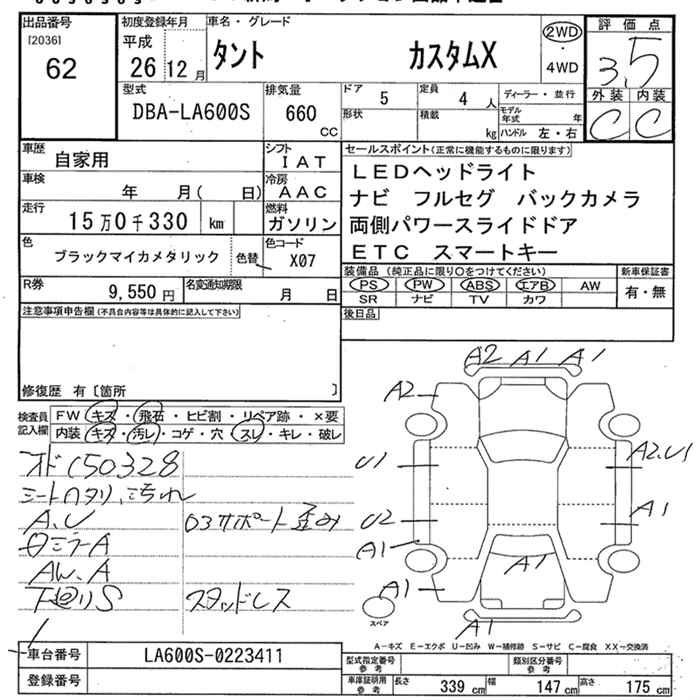 出品番号
[2036]
62
初度登録年月
平成
26 12月
車名・グレード
タント カスタムX
2WD
・
4WD
評価点
3.5
外装 内装
C C
型式
DBA-LA600S
排気量
660
CC
ドア
5
定員
4 人
ディーラー・並行
形状
積載
kg
モデル年式 年
ハンドル 左・右
車歴
自家用
シフト
IAT
車検
年 月( 日)
冷房
AAC
走行
15万0千330 km
燃料
ガソリン
色
ブラックマイカメタリック
色替
色コード
X07
R券
9,550円
名変通知期限
月 日
セールスポイント(正常に機能するものに限ります)
LEDヘッドライト
ナビ フルセグ バックカメラ
両側パワースライドドア
ETC スマートキー
装備品(純正品に限り○をつけてください)
新車保証書
PS PW ABS エアB AW
有・無
SR ナビ TV カワ
後日品
注意事項申告欄(不具合内容等は具体的に記入して下さい)
修復歴 有〔箇所 〕
検査員記入欄
FW キズ・飛石・ヒビ割・リペア跡・×要
内装 キズ・汚レ・コゲ・穴・スレ・キレ・破レ
オド150328
シートヘタリ、汚れ
A、U
ロミラーA
AW、A
下廻りS
D3サポート歪み
スタッドレス
A2 A1 A1
A2
U1
A2、U1
U2
A1
A1
A1
A1
A1
スペア
A−キズ E−エクボ U−凹み W−補修跡 S−サビ C−腐食 XX−交換済
車台番号
LA600S-0223411
登録番号
型式指定番号
参考
類別区分番号
参考
車庫証明用
参考
長さ 339 cm
幅 147 cm
高さ 175 cm